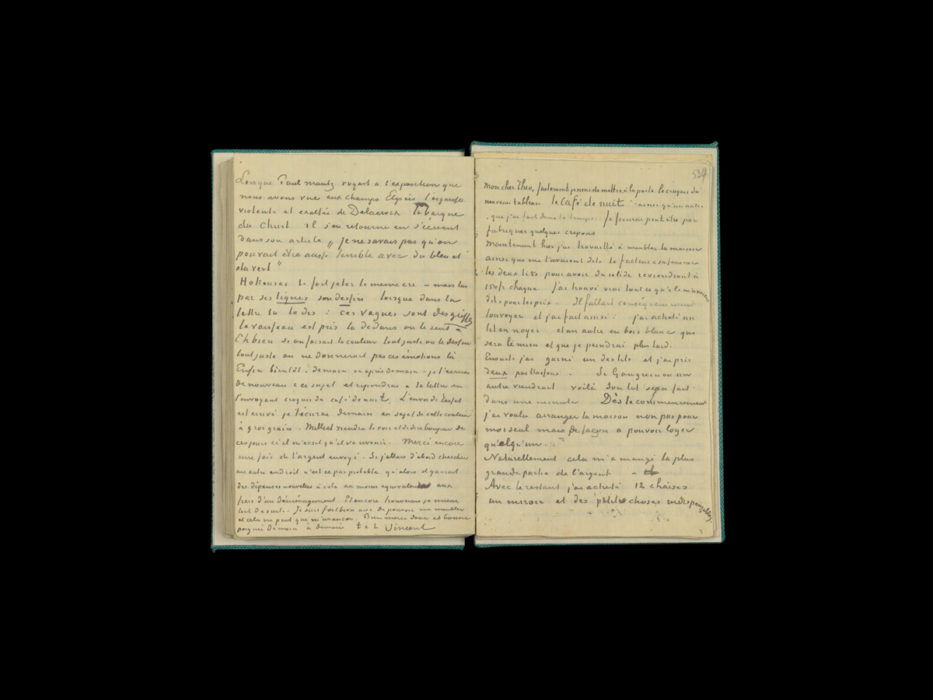 Lorsque Paul Mantz voyait à l'exposition que
nous avons vue aux Champs Elysées l'esquisse
violente et exaltée de Delacroix la barque
du Christ il s'en retourne en s'écriant
dans son article „ je ne savais pas qu'on
pouvait être aussi terrible avec du bleu et
du vert ”
Hokousai te fait jeter le même cri – mais lui
par ses lignes son dessin lorsque dans ta
lettre tu te dis : ces vagues sont des griffes
le vaisseau est pris là dedans on le sent
Eh bien si on faisait la couleur tout juste ou le dessin
tout juste on ne donnerait pas ces émotions là
Enfin bientôt – demain ou après demain – je t'écrirai
de nouveau à ce sujet et répondrai à ta lettre en
t'envoyant croquis du café de nuit. L'envoi de Tasset
est arrivé je t'écrirai demain au sujet de cette couleur
à gros grain. Milliet viendra te voir et dire bonjour de
ces jours ci il m'écrit qu'il va revenir. Merci encore
une fois de l'argent envoyé. Si j'allais d'abord chercher
un autre endroit n'est ce pas probable qu'alors il y aurait
des dépenses nouvelles à cela au moins equivalentes aux
frais d'un déménagement. Et encore trouverais je mieux
tout de suite. Je suis fort bien aise de pouvoir me meubler
et cela ne peut que m'avancer. Bien merci donc et bonne
poignée de main à demain t. à t. Vincent
534
mon cher Theo, justement je viens de mettre à la poste le croquis du
nouveau tableau le Café de nuit ainsi qu'un autre
que j'ai fait dans le temps. Je finirai peut etre par
fabriquer quelques crepons
Maintenant hier j'ai travaillé à meubler la maison
ainsi que me l'avaient dit le facteur et sa femme
les deux lits pour avoir du solide reviendront à
150 fr chaque j'ai trouvé vrai tout ce qu'ils m'avaient
dit pour les prix. Il fallait conséquemment
louvoyer et j'ai fait ainsi : j'ai acheté un
lit en noyer et un autre en bois blanc qui
sera le mien et que je peindrai plus tard.
Ensuite j'ai garni un des lits et j'ai pris
deux paillasses. Si Gauguin ou un
autre viendrait voilà son lit sera fait
dans une minute. Dès le commencement
j'ai voulu arranger la maison non pas pour
moi seul mais de façon à pouvoir loger
quelqu'un.
Naturellement cela m'a mangé la plus
grande partie de l'argent
Avec le restant j'ai acheté 12 chaises
un miroir et des petites choses indispensables